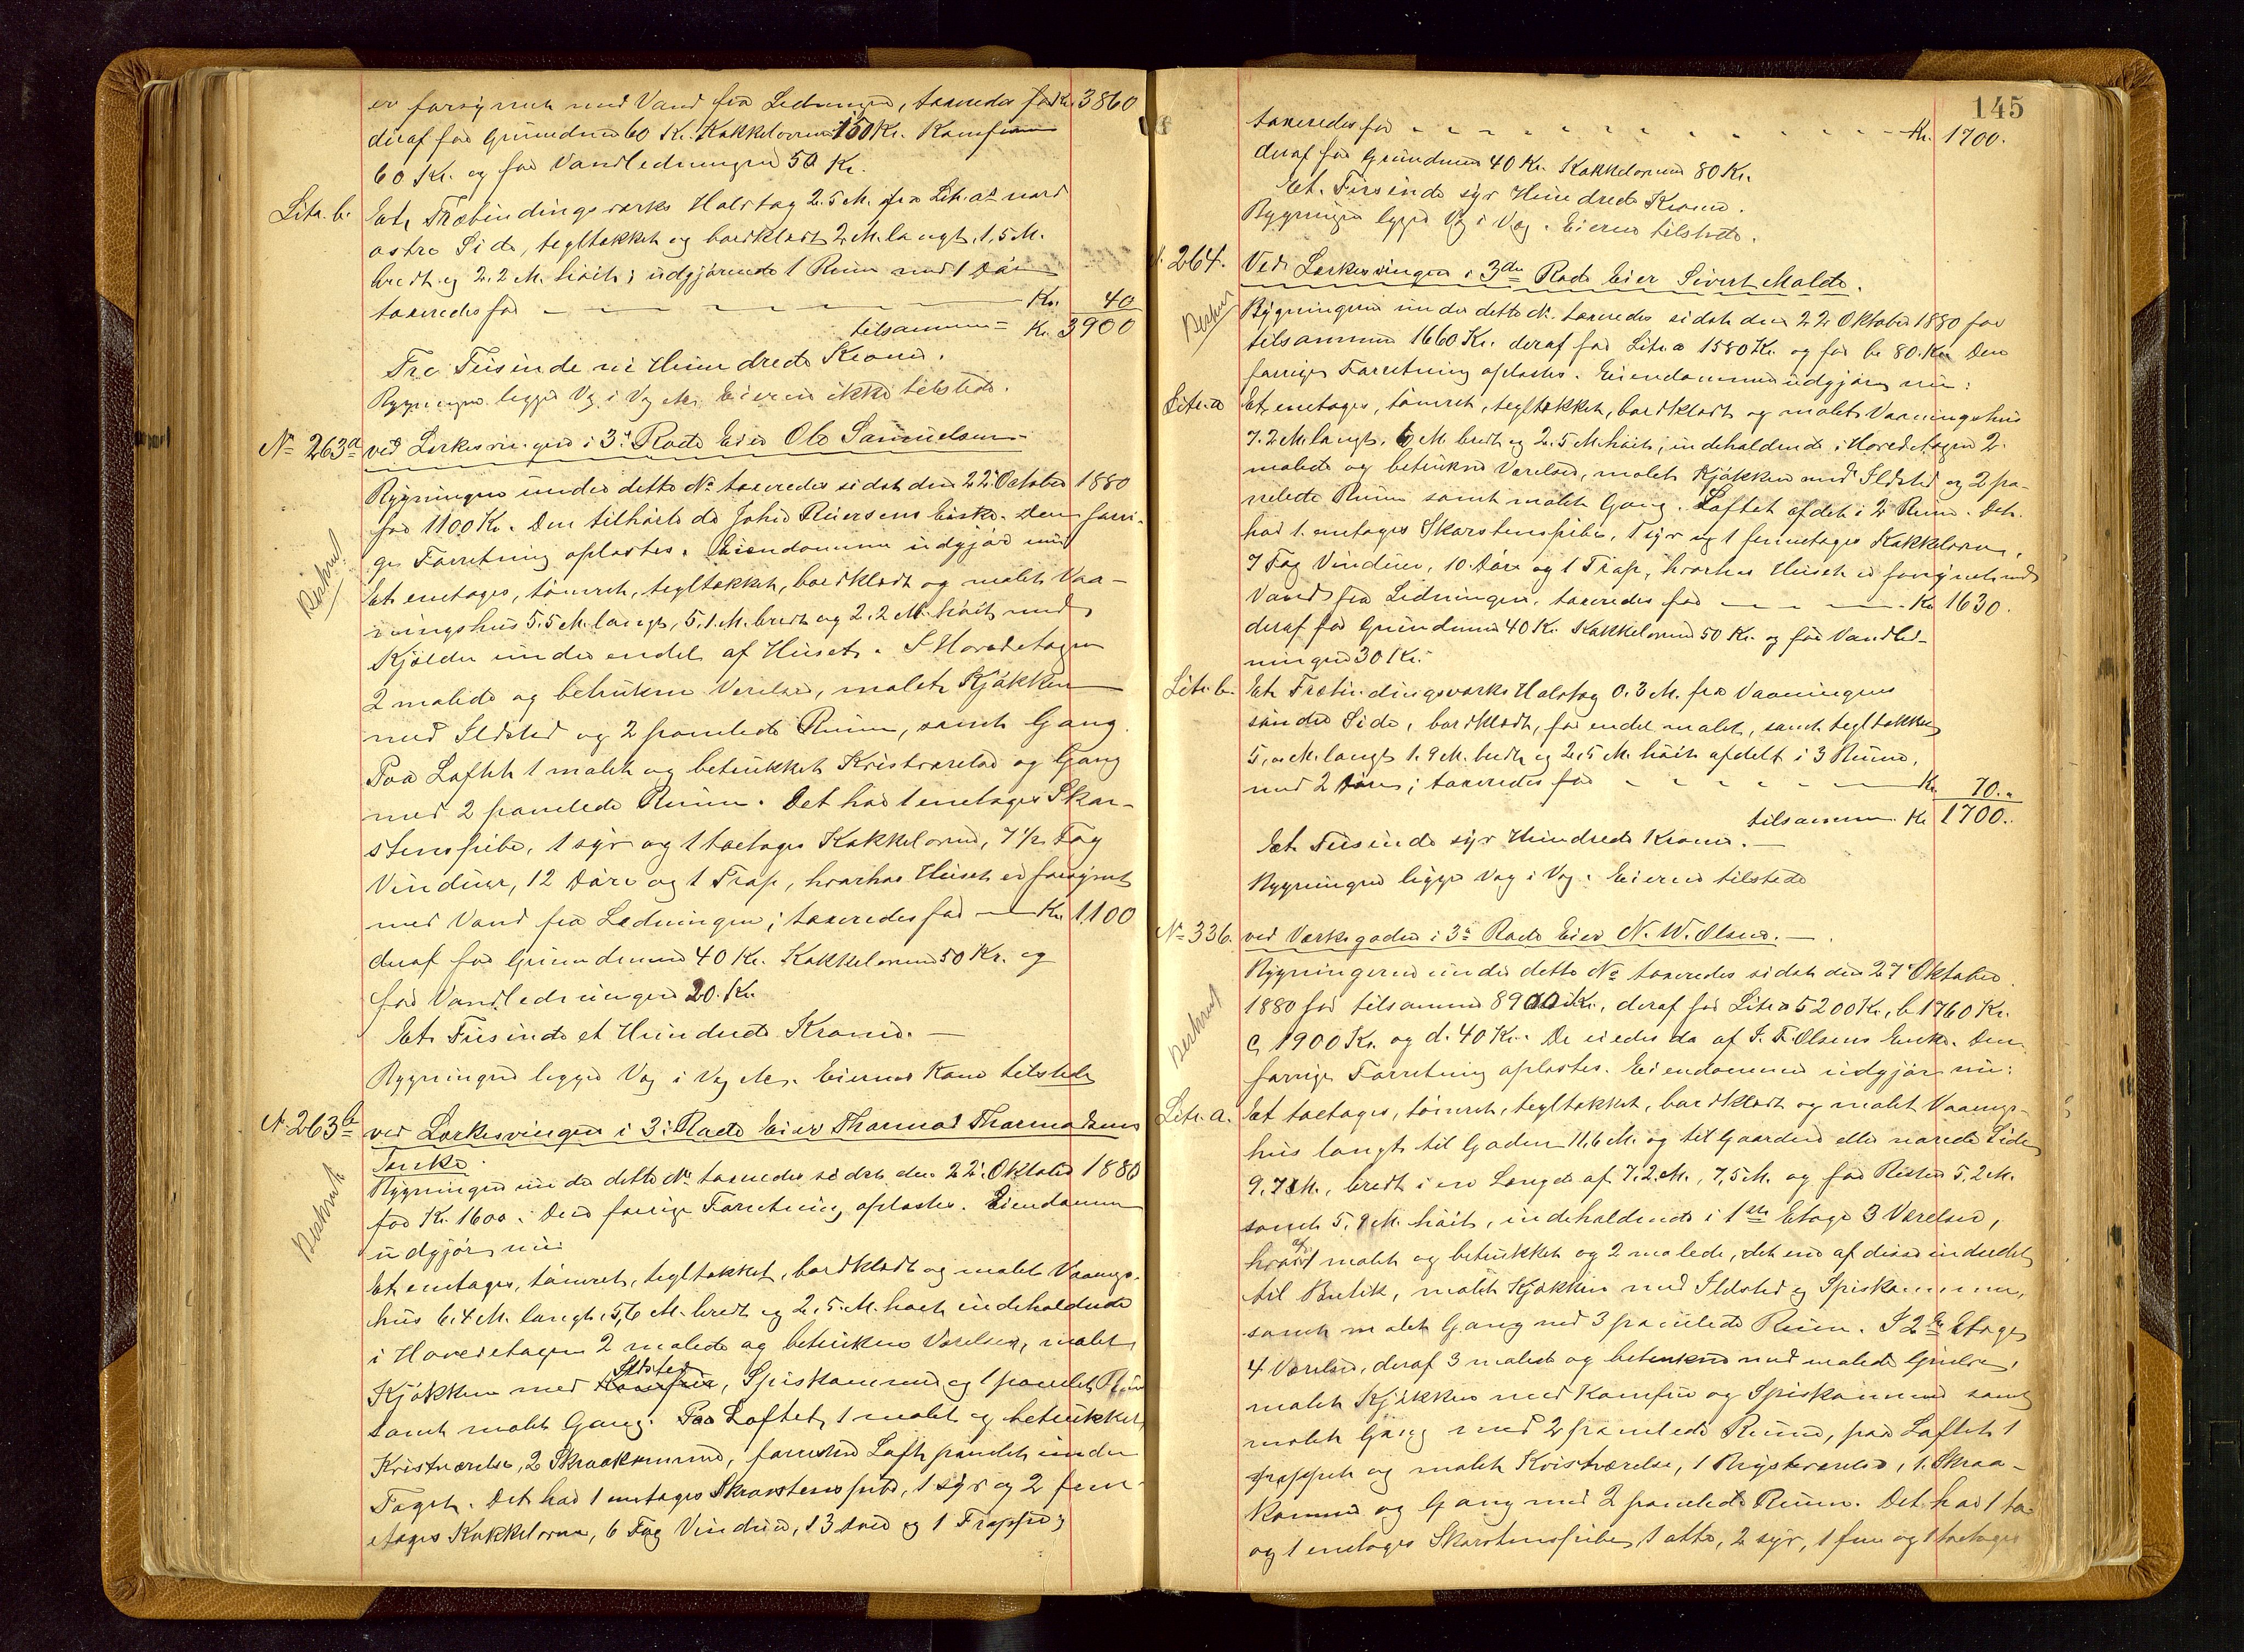 er forsynet med Vand fra Ledningen, taxeredes for Kr. 3860
deraf for Grundmur 60 Kr. Kakkelovne 150 Kr. Komfurer
60 Kr. og for Vandledningen 50 Kr.
Litr. b. Et Træbindingsværks Halvtag 2.5 M. fra Litr. a's nord
østre Side, tegltækket og bordklædt 2 M. langt, 1,5 M.
bredt og 2.2 M. høit; udgjørende 1 Rum med 1 Dør
taxeredes for Kr. 40
tilsammen = Kr. 3900
Tre Tusinde ni Hundrede Kroner.
Bygningen ligger Væg i Væg Eieren ikke tilstede.
No 263a ved Lerkesvingen i 3' Rode Eier Ole Samuelsen
Bygningen under dette No taxeredes sidst den 22' October 1880
for 1100 Kr. Den tilhørte da John Reiersens Enke. Den forri-
ge Forretning oplæstes. Eiendommen udgjør nu
Beskrut
Et enetages, tømret, tegltækket, bordklædt og malet Vaa-
ningshus 5.5 M. langt, 5.1 M. bredt og 2.2 M. høit med
Kjelder under endel af Huset. I Hovedetagen
2 malede og betrukne Værelser, malet Kjøkken
med Ildsted og 2 panelede Rum, samt Gang.
Paa Loftet 1 malet og betrukket Kvistværelse og Gang
med 2 panelede Rum. Det har 1 enetages Skor-
stenspibe, 1 syv og 1 toetages Kakkelovne, 7 1/2 Fag
Vinduer, 12 Døre og 1 Trap, hvorhos Huset er forsynet
med Vand fra Ledningen; taxeredes for Kr. 1100
deraf for Grundmur 40 Kr. Kakkelovne 50 Kr. og
for Vandledningen 20. Kr.
Et Tusinde et Hundrede Kroner. —
Bygningen ligger Væg i Væg Eierens Kone tilstede
No 263b ved Lerkesvingen i 3' Rode Eier Thormod Thormodsens
Enke.
Bygningen under dette No taxeredes sidst den 22' Oktober 1880
for Kr. 1600. Den forrige Forretning oplæstes. Eiendommen
udgjør nu:
Beskrut
Et enetages, tømret, tegltækket, bordklædt og malet Vaanings-
hus 6.4 M. langt, 5,6 M. bredt og 2.5 M. høit indeholdende
i Hovedetagen 2 malede og betrukne Værelser, malet
Ildsted
Kjøkken med Komfur, Spiskammer og 1 panelet Rum
samt malet Gang. Paa Loftet, 1 malet og betrukket
Kvistværelse, 2 Skraakammer, forresten Loft panelet under
Taget. Det har 1 enetages Skorstenspibe, 1 syv og 2 fem-
etages Kakkelovne, 6 Fag Vinduer, 13 Døre og 1 Trappe;
145
taxeredes for Kr. 1700.
deraf for Grundmur 40 Kr. Kakkelovne 80 Kr.
Et Tusinde syv Hundrede Kroner.
Bygningen ligger Væg i Væg. Eieren tilstede.
N. 264. Ved Lerkesvingen i 3die Rode Eier Sivert Malde.
Beskrut
Bygningerne under dette No. taxeredes sidst den 22 Oktober 1880 for
tilsammen 1660 Kr. deraf for Litr. a 1580 Kr. og for b. 80. Kr. Den
forrige Forretning oplæstes. Eiendommen udgjør nu:
Litr. a Et enetages, tømret, tegltækket, bordklædt og malet Vaaningshus
7.2 M. langt, 6 M. bredt og 2.5 M. høit; indeholdende i Hovedetagen 2
malede og betrukne Værelser, malet Kjøkken med Ildsted og 2 pa-
nelede Rum samt malet Gang. Loftet afdelt i 2 Rum. Det
har 1 enetages Skorstenspibe, 1 syv og 1 femetages Kakkelovne,
7 Fag Vinduer, 10 Døre og 1 Trap, hvorhos Huset er forsynet med
Vand fra Ledningen, taxeredes for Kr. 1630.
deraf for Grundmur 40 Kr. Kakkelovne 50 Kr. og for Vandled-
ningen 30 Kr.
Litr. b. Et Træbindingsværks Halvtag 0.3 M. fra Vaaningens
søndre Side, bordklædt, for endel malet, samt tegltækket
5,0 M. langt 1.9 M. bredt og 2.5 M. høit afdelt i 3 Rum,
med 2 Døre; taxeredes for Kr. 70.
tilsammen Kr. 1700.
Et Tusinde syv Hundrede Kroner. —
Bygningen ligger Væg i Væg. Eieren tilstede
No 336. ved Værksgaden i 3' Rode Eier N. W. Olsen. —
Bygningerne under dette No taxeredes sidst den 27' Oktober
1880 for tilsammen 8900 Kr., deraf for Litr. a 5200 Kr., b. 1760 Kr.
c. 1900 Kr. og d. 40 Kr. De eiedes da af S. T. Olsens Enke. Den
Beskrut
forrige Forretning oplæstes. Eiendommen udgjør nu:
Litr. a. Et toetages, tømret, tegltækket, bordklædt og malet Vaanings-
hus langt til Gaden 11,6 M. og til Gaarden eller nordre Side
9.7 M., bredt i en Længde af 7.2 M., 7,5 M. og for Resten 5,2 M.
samt 5.9 M. høit, indeholdende i 1ste Etage 3 Værelser,
hvoraf 1 malet og betrukket og 2 malede, det ene af disse indredet
til Butik, malet Kjøkken med Ildsted og Spiskammer,
samt malet Gang med 3 panelede Rum. I 2den Etage
4 Værelser, deraf 3 malede og betrukne med malede Gibser,
malet Kjøkken med Komfur og Spiskammer samt
malet Gang med 2 panelede Rum, paa Loftet 1
trappet og malet Kvistværelse, 1 Brystværelse, 1. Skraa-
kammer og Gang med 2 panelede Rum. Det har 1 to
og 1 enetages Skorstenspiber, 1 otte, 2 syv, 1 fem og 1 toetages